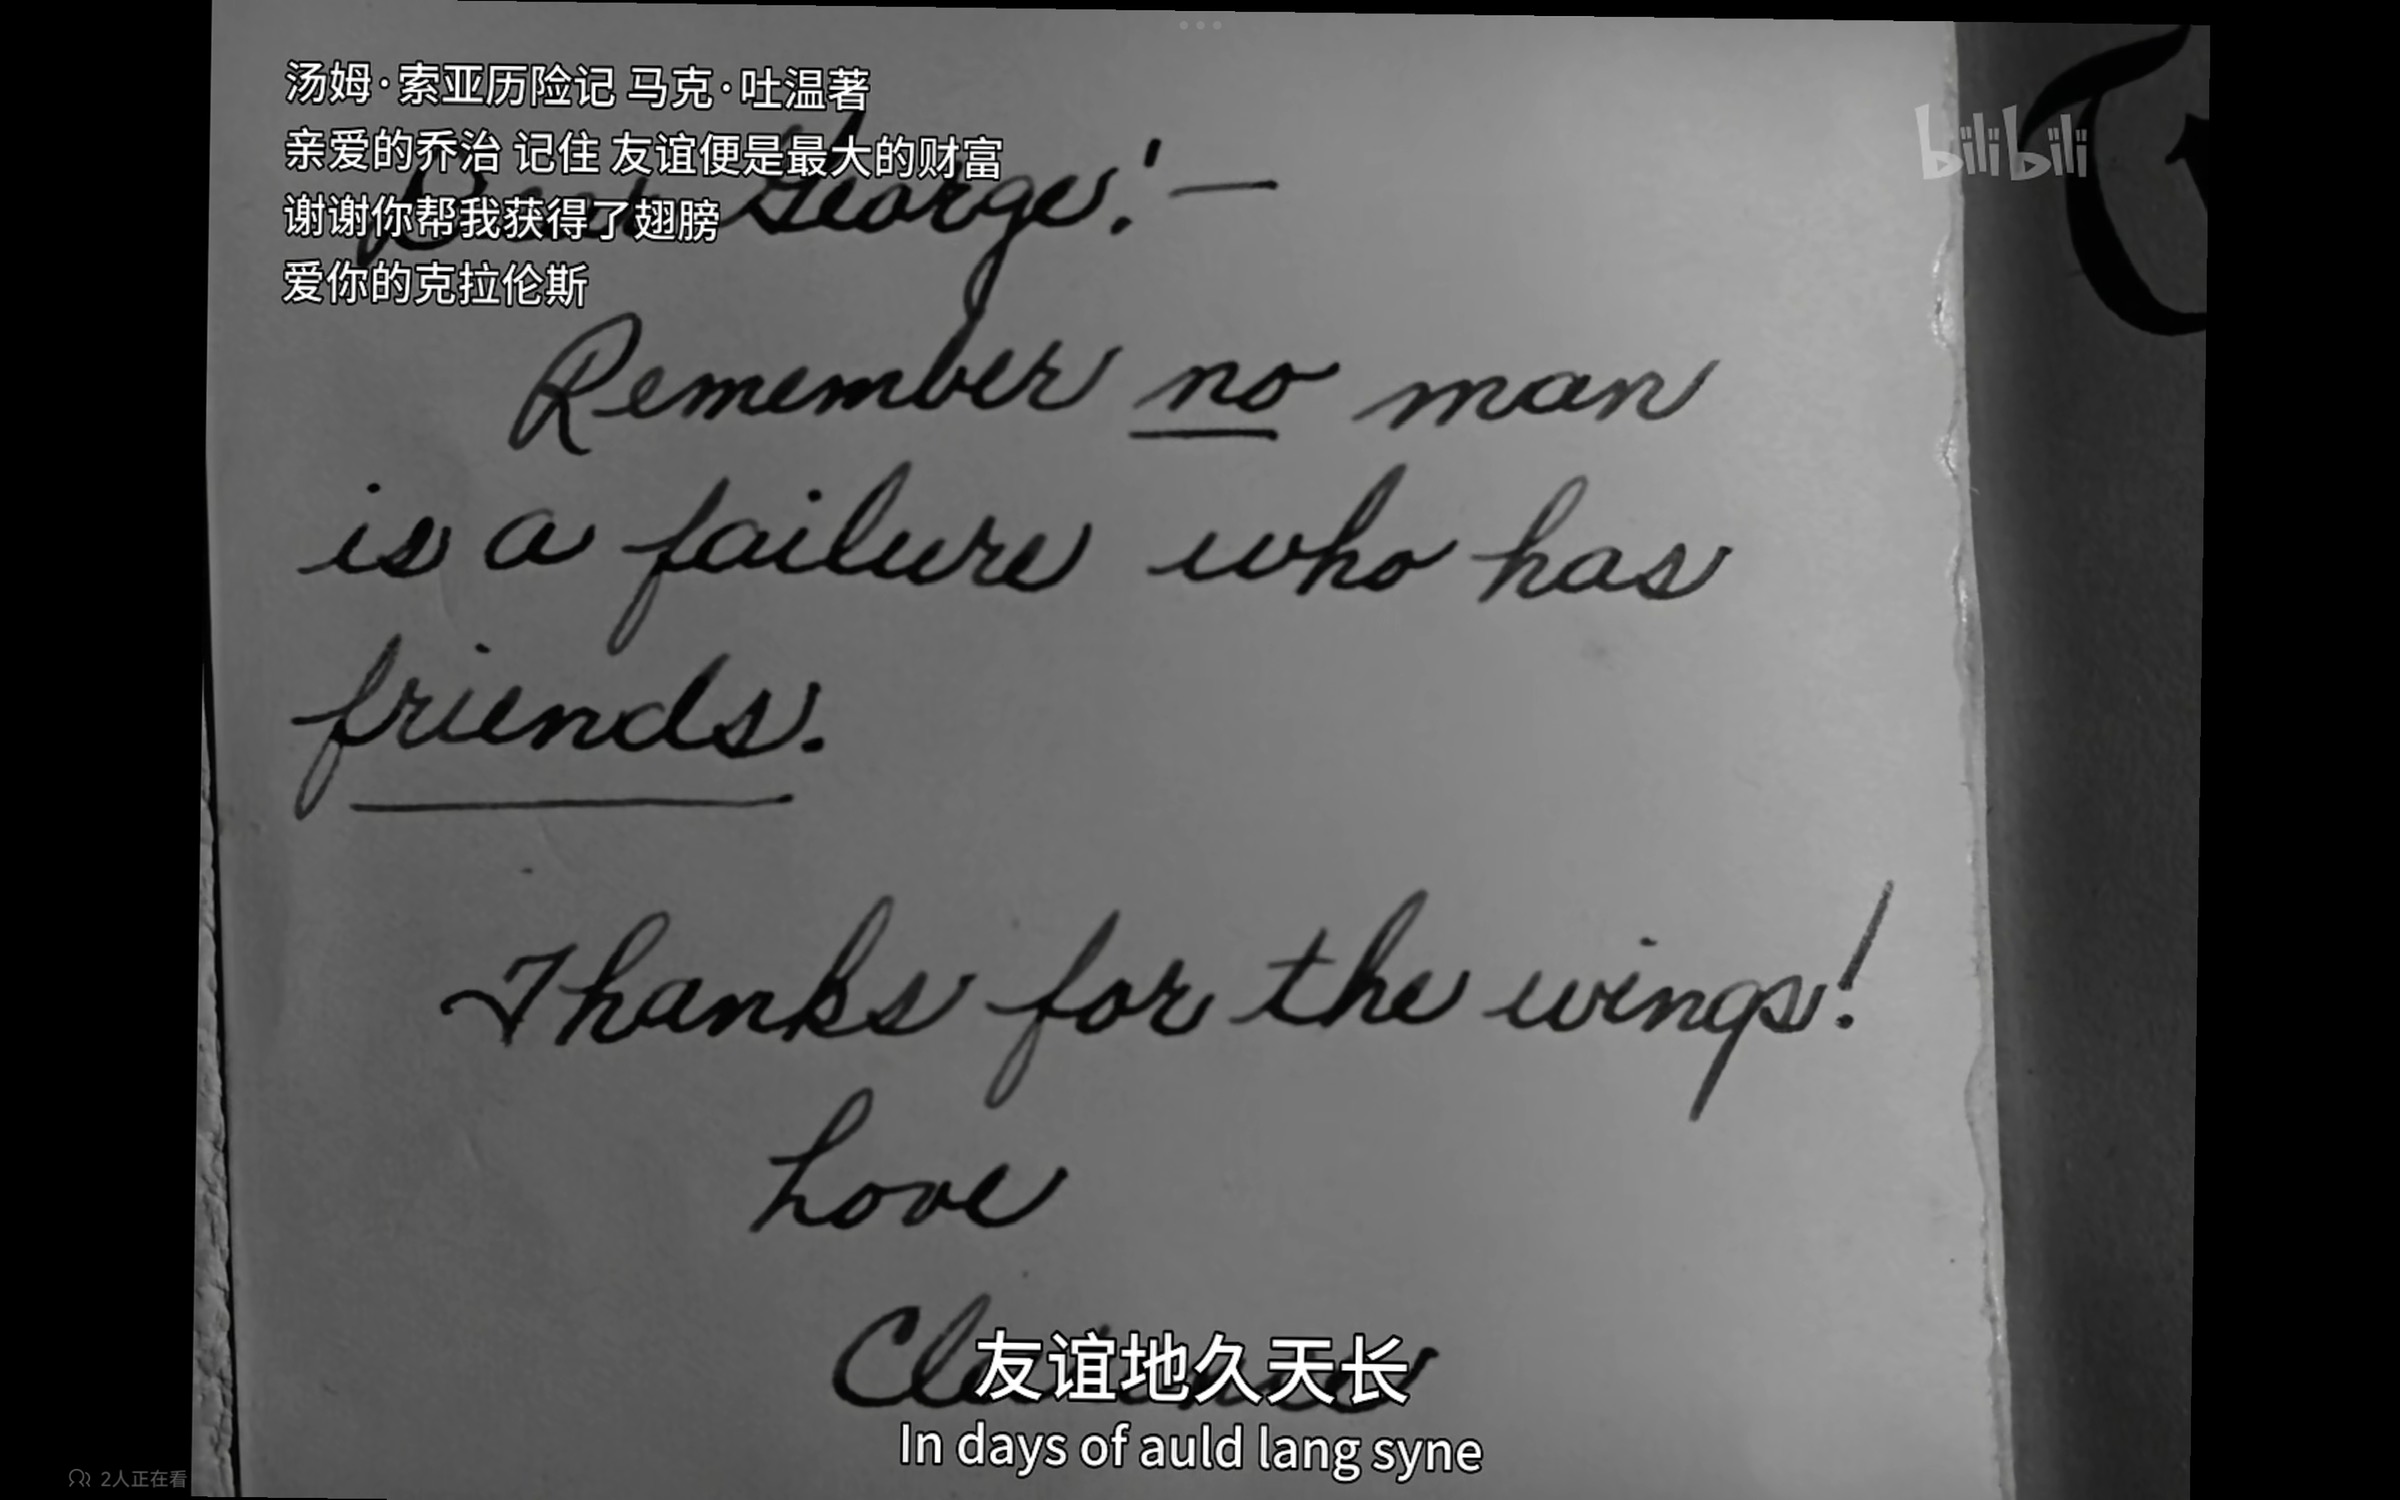 汤姆·索亚历险记 马克·吐温著
亲爱的乔治 记住 友谊便是最大的财富
谢谢你帮我获得了翅膀
爱你的克拉伦斯
bilibili
Dear George:—
Remember no man
is a failure who has
friends.
Thanks for the wings!
Love
友谊地久天长
In days of auld lang syne
2人正在看